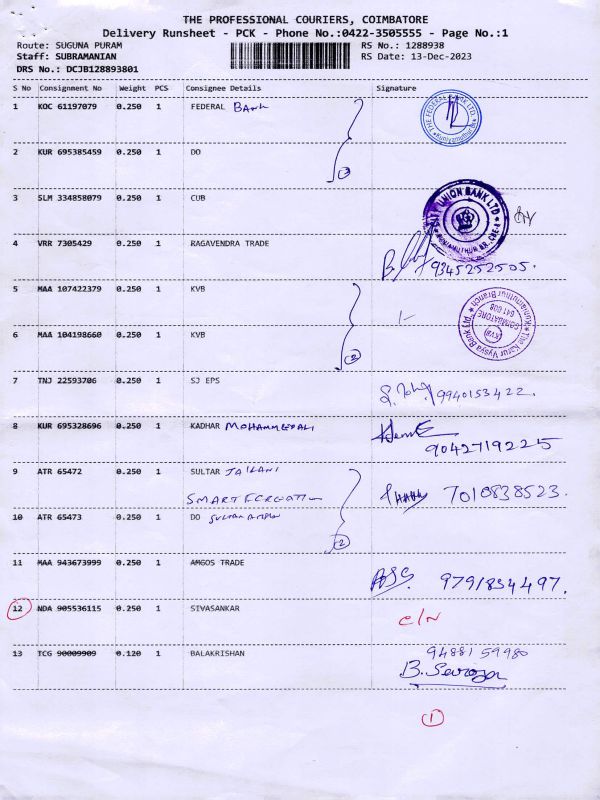 THE PROFESSIONAL COURIERS, COIMBATORE
Delivery Runsheet - PCK - Phone No.:0422-3505555 - Page No.:1
Route: SUGUNA PURAM RS No.: 1288938
Staff: SUBRAMANIAN RS Date: 13-Dec-2023
DRS No.: DCJB128893801
S No Consignment No Weight PCS Consignee Details Signature
1 KOC 61197079 0.250 1 FEDERAL Bank
THE FEDERAL BANK LTD.
2 KUR 695385459 0.250 1 DO
2
3 SLM 334858079 0.250 1 CUB
CITY UNION BANK LTD
4 VRR 7305429 0.250 1 RAGAVENDRA TRADE
9345252505.
5 MAA 107422379 0.250 1 KVB
The Karur Vysya Bank Ltd
Kuniamuthur Branch
KVB
COIMBATORE
641 008
6 MAA 104198660 0.250 1 KVB
2
7 TNJ 22593706 0.250 1 SJ EPS
9940153422.
8 KUR 695328696 0.250 1 KADHAR MOHAMMED ALI
9042719225
9 ATR 65472 0.250 1 SULTAR JAILANI
SMART 7010838523.
10 ATR 65473 0.250 1 DO
2
11 MAA 943673999 0.250 1 AMGOS TRADE
9791834497.
12 NDA 905536115 0.250 1 SIVASANKAR
C/N
13 TCG 90009909 0.120 1 BALAKRISHAN
9488159980
B. Saroja
1